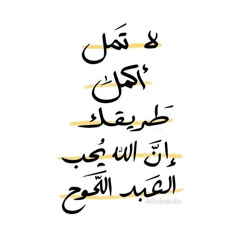 لا تَمل
أكمل
طَريقك
إنَّ الله يُحب
العَبد اللَّحوح